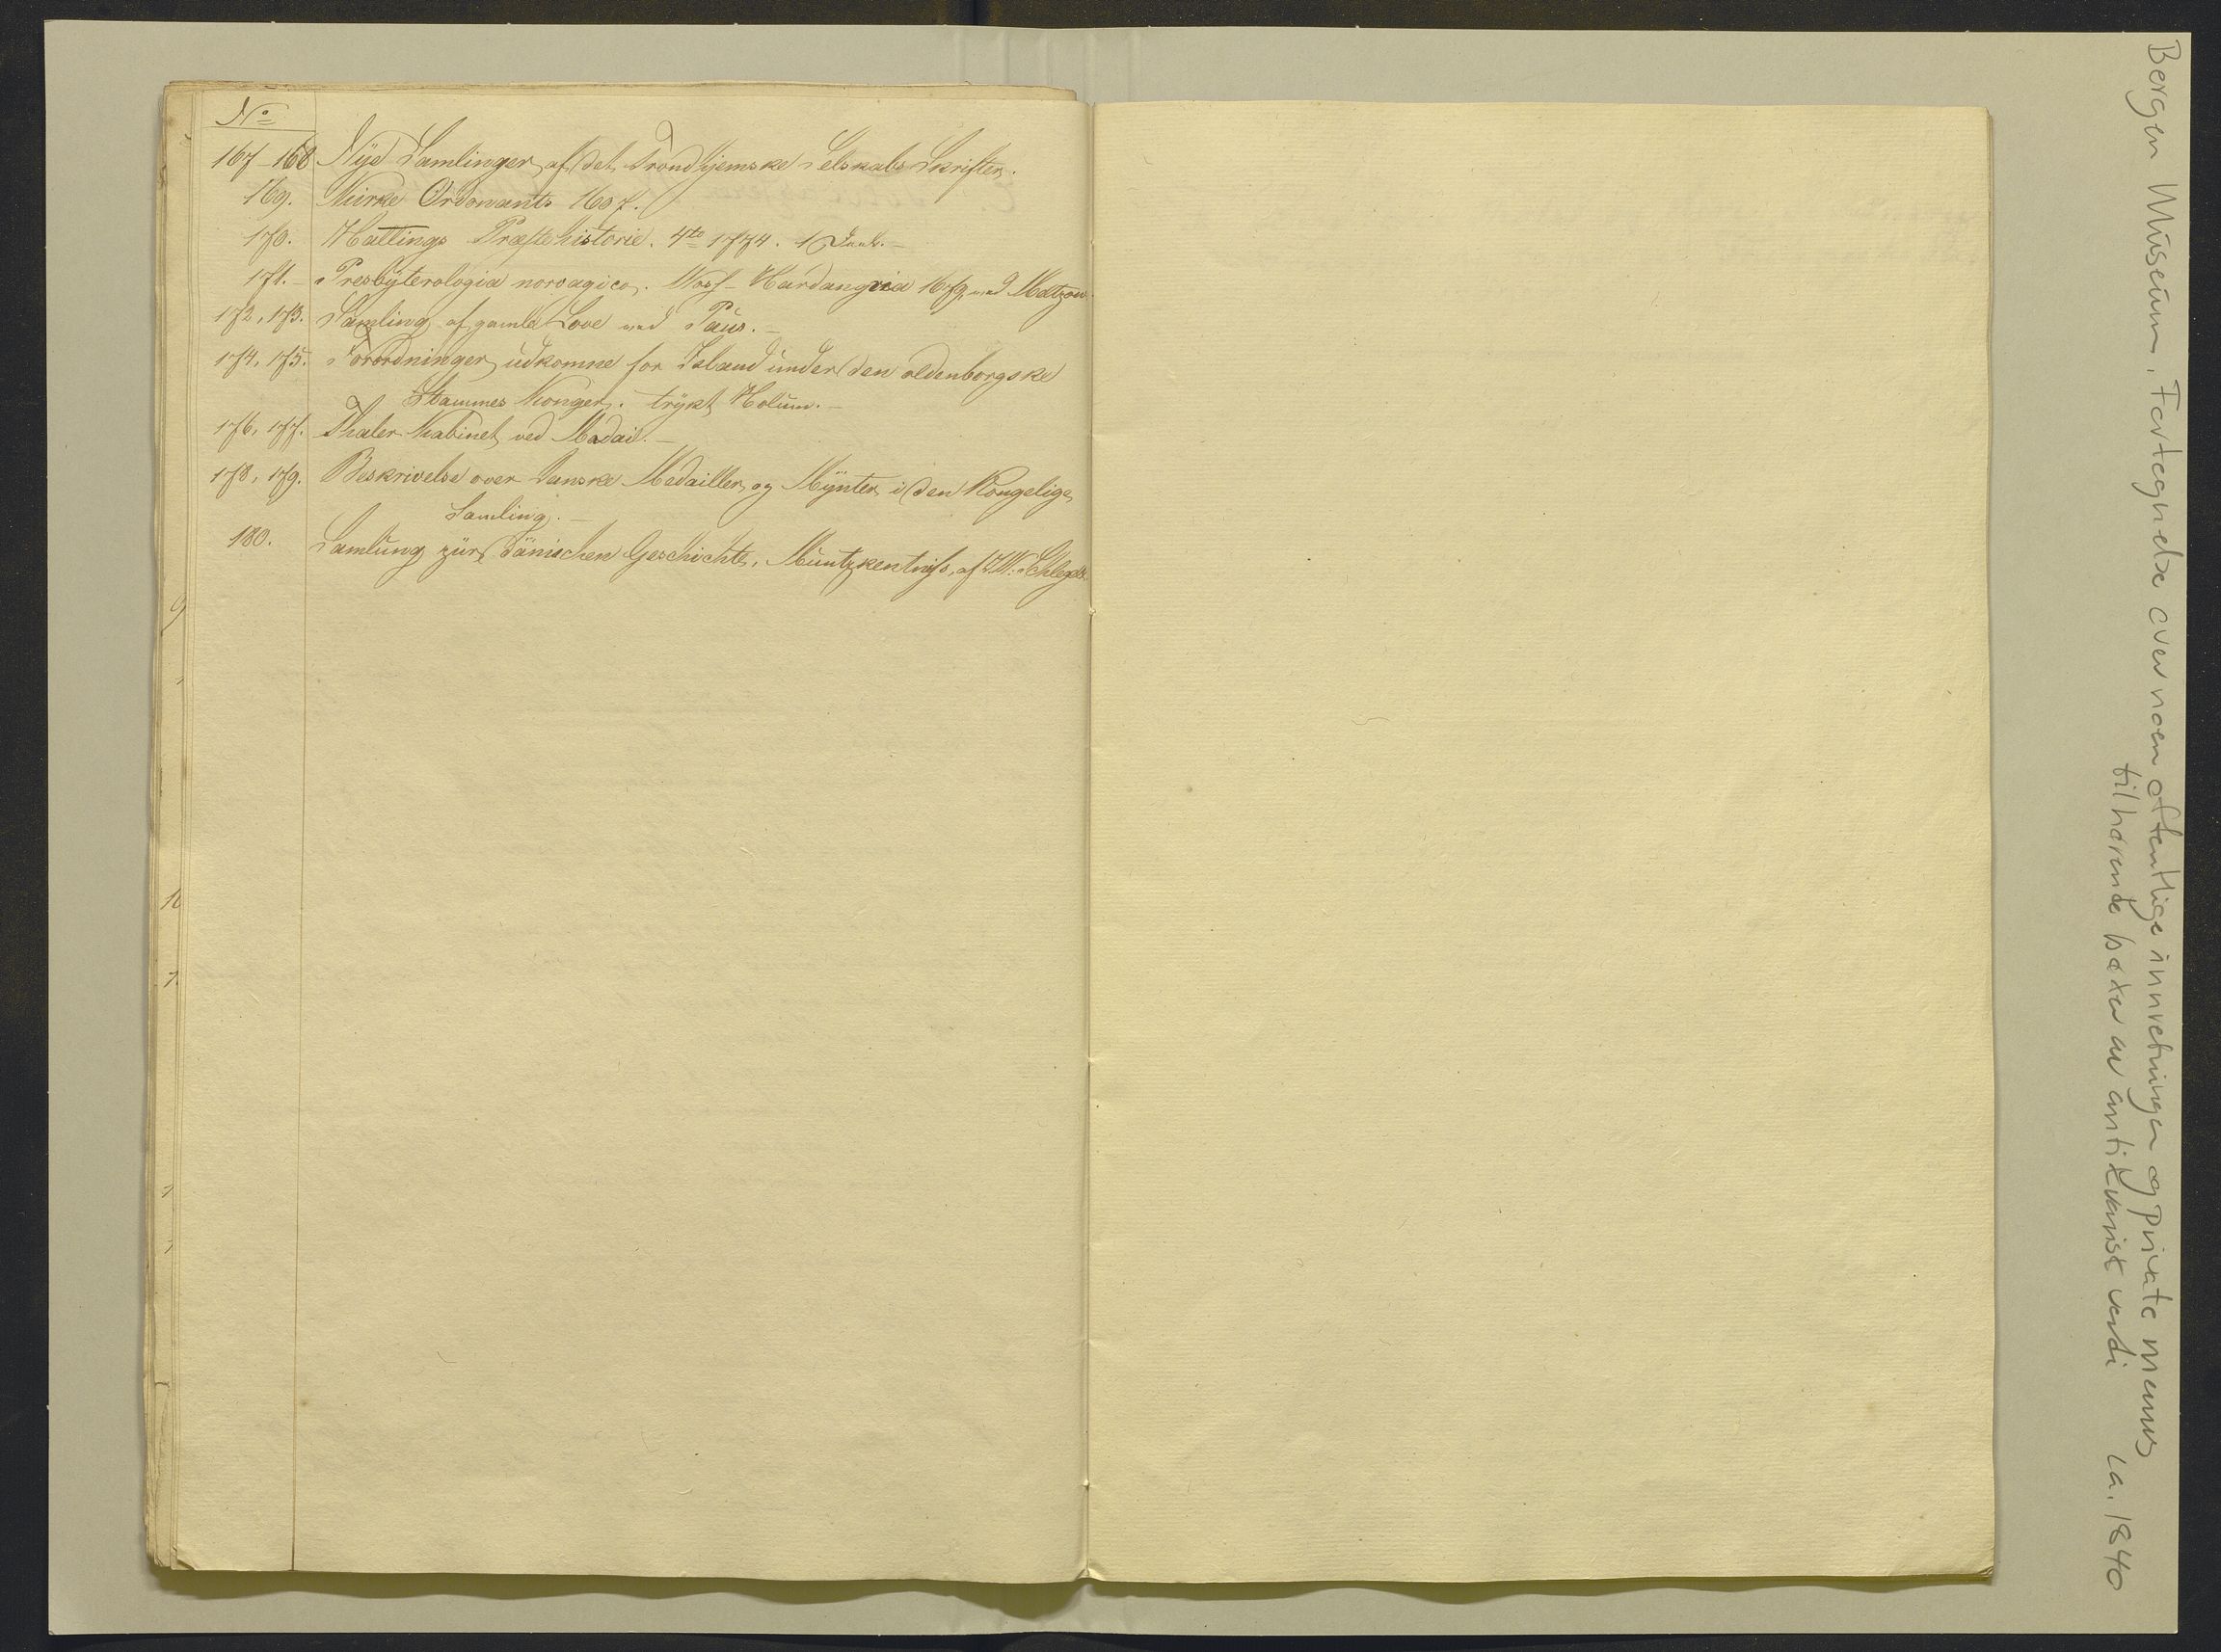 No
167-168. Nye Samlinger af det Trondhjemske Selskabs Skrifter.
169. Kirke Ordonants 1607.
170. Hallings Præstehistorie. 4to 1774. 1
171. Presbyterologia norvagica. Voss- Hardangria 1679, ved Matzon.
172, 173. Samling af gamle Love ved Paus.
174, 175. Forordninger udkomne for Island under den oldenborgske
Stammes Konger. trykt Holum.
176, 177. Thaler Kabinet ved Madai.
178, 179. Beskrivelse over Danske Medailler og Mynter i den Kongelige
Samling.
180. Samlung zür dänischen Geschichte, Müntzkentniss, af J.H. Schlegel.
Bergen Museum, Fortegnelse over noen offentlige innretninger og private menns
tilhørende bøker av antikvarisk verdi ca. 1840